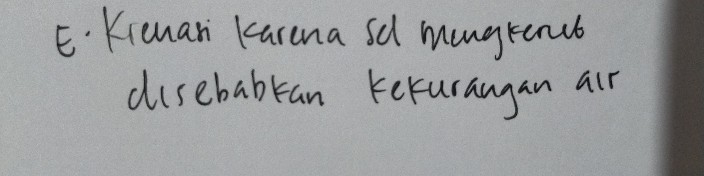 E. Krenasi karena sel mengkerut
disebabkan kekurangan air